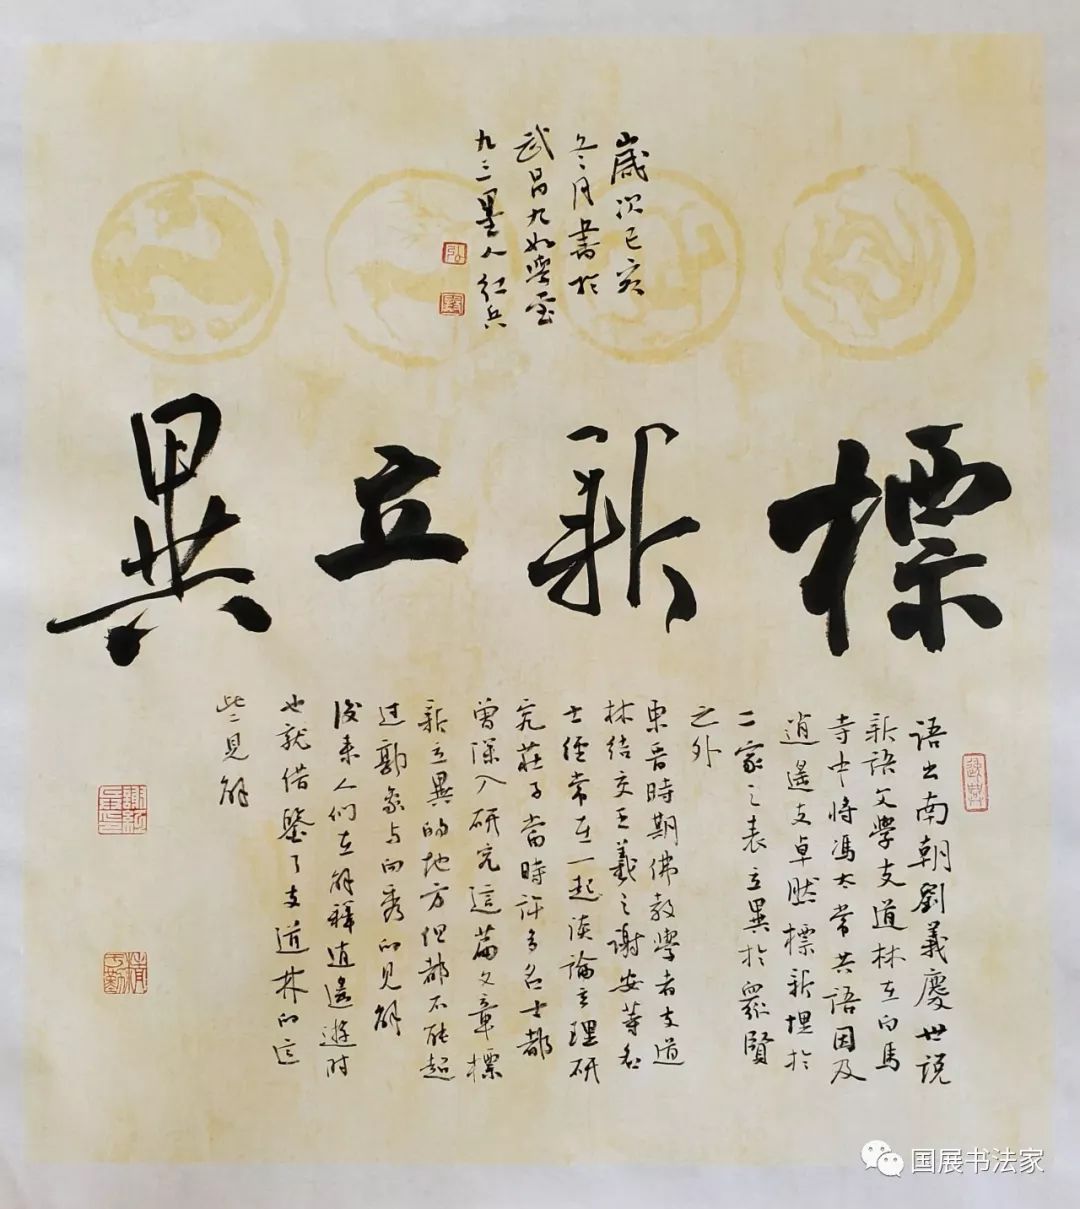 標新立異
歲次己亥
冬月書於
武昌九如學堂
九三墨人紅兵
語出南朝劉義慶世説
新語文學支道林在白馬
寺中將馮太常共語因及
逍遙支卓然標新理於
二家之表立異於眾賢
之外
東晉時期佛教學者支道
林結交王羲之謝安等名
士經常在一起談論玄理研
究莊子當時許多名士都
曾深入研究這篇文章標
新立異的地方但都不能超
過郭象与向秀的見解
後来人们在解釋逍遙遊时
也就借鑒了支道林的這
些見解
国展书法家